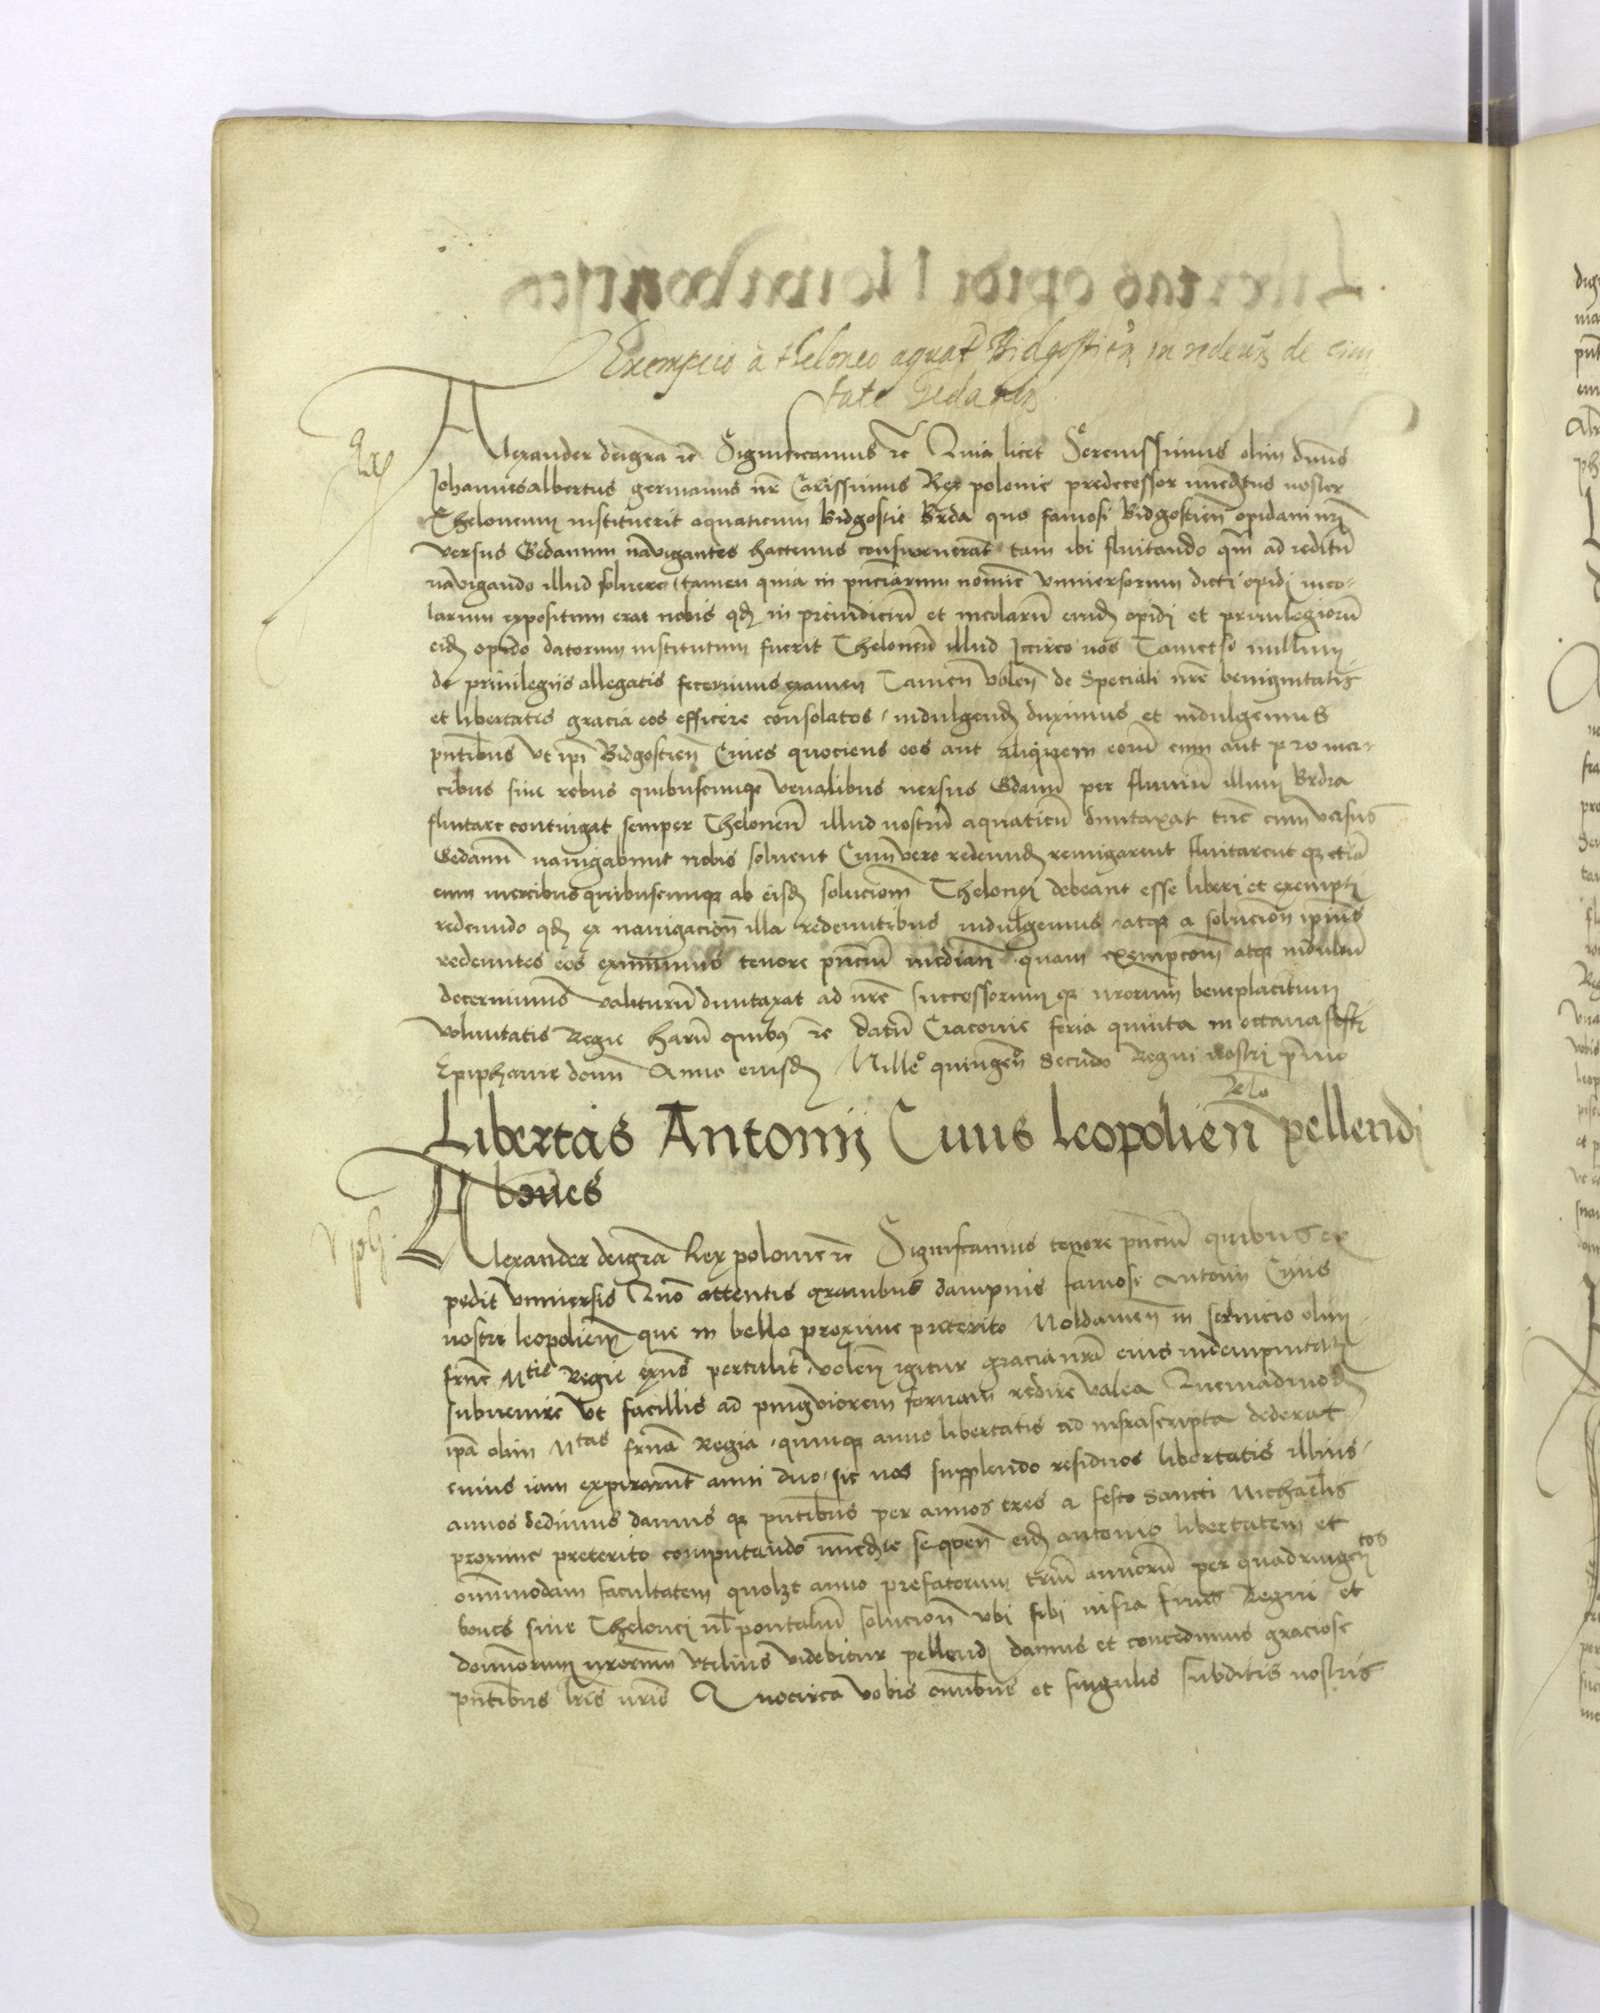 Exempcio à theloneo aquat Bidgostien in redeun de civi
tate Gedanen
Alexander deigra rc Significamus rc Quia licet Serenissimus olim dnus
Johannesalbertus germanus nr Carissimus Rex polonie predecessor immediatus noster
Theloneum instituerit aquaticum Bidgostie Brda quo famosi Bidgostien opidani nri
versus Gedanum navigantes hactenus consueverant tam ibi fluitando qm ad reditum
navigando illud solvere tamen quia in pnciarum nomine universorum dicti opidi inco-
larum expositum erat nobis qd in preiudicium et incolarum eiusd opidi et privilegiorum
eid opido datorum institutum fuerit Theloneu illud Iccirco nos Tametsi nullum
de privilegiis allegatis fecerimus examen Tamen volen de Speciali nre benignitatis
et libertatis gracia eos efficere consolatos indulgend duximus et indulgemus
pntibus ut ipi Bidgostien Cives quociens eos aut aliquem eorum cum aut pro mer-
cibus sive rebus quibuscunque venalibus versus Gdanu per fluvium illum Brdra
fluitare contingat semper Theloneu illud nostru aquaticu duntaxat tunc cum versus
Gedanu navigabunt nobis solvent Cum vero redeund remigarent fluitarent que etia
cum mercibus quibuscunque ab eisd solucionem Thelonei debeant esse liberi et exempti
redeundo qd ex navigacion illa redeuntibus indulgemus atque a solucion ipius
redeuntes eos eximimus tenore pncium median quam exempcom atque indultu
decernimus valiturum duntaxat ad nre Successorum que nrorum beneplacitum
voluntatis Regie Harum quibus rc datum Cracovie feria quinta in octava festi
Epiphanie domi Anno eiusd Millo quingen Secundo Regni nostri primo
Libertas Antonij Civis leopolien pellendi
boves
Alexander deigra Rex polonie rc Significamus tenore pncium quibus ex
pedit universis Quo attentis gravibus dampnis famosi Antonij Civis
nostri leopolien que in bello proxime preterito Moldavien in servicio olim
frnie Mtis Regie pertulit volen igitur gracia nra eius indempnitati
subvenire ut facilius ad pinguiorem fortunam redire valea Quemadmod
ipa olim Mtas frna Regia quinque anno libertatis ad infrascripta dederat
cuius iam expirarunt anni duo sic nos supplendo residuos libertatis illius
annos dedimus damus que pntibus per annos tres a festo Sancti Michaelis
proxime preterito computando immediate sequen eid Antonio libertatem et
omnimodam facultatem quolibet anno prefatorum trium annorum per quadringentos
boves sine Thelonei vel pontalium solucion ubi sibi infra fines Regni et
dominiorum nrorum utilius videbitur pellend damus et concedimus graciose
pntibus lris nris Quocirca vobis omnibus et singulis subditis nostris